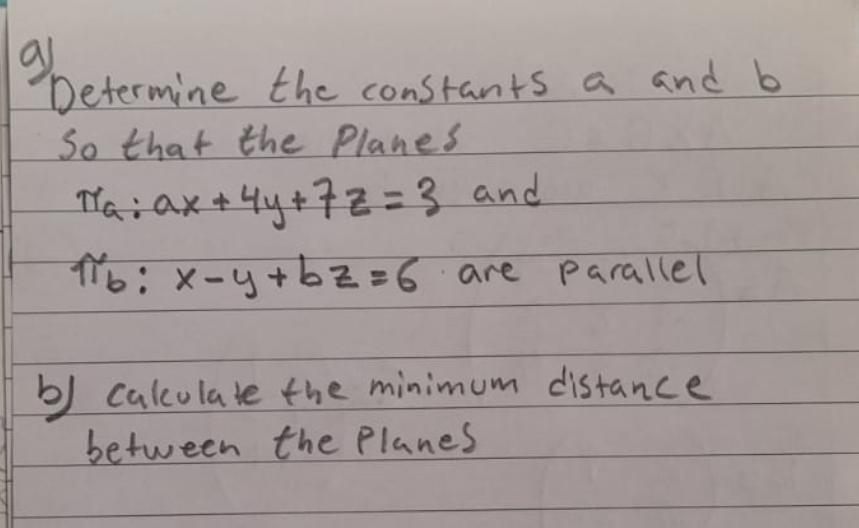 a)
Determine the constants a and b
So that the Planes
πa: ax+4y+7z=3 and
πb: x-y+bz=6 are parallel
b) calculate the minimum distance
between the Planes